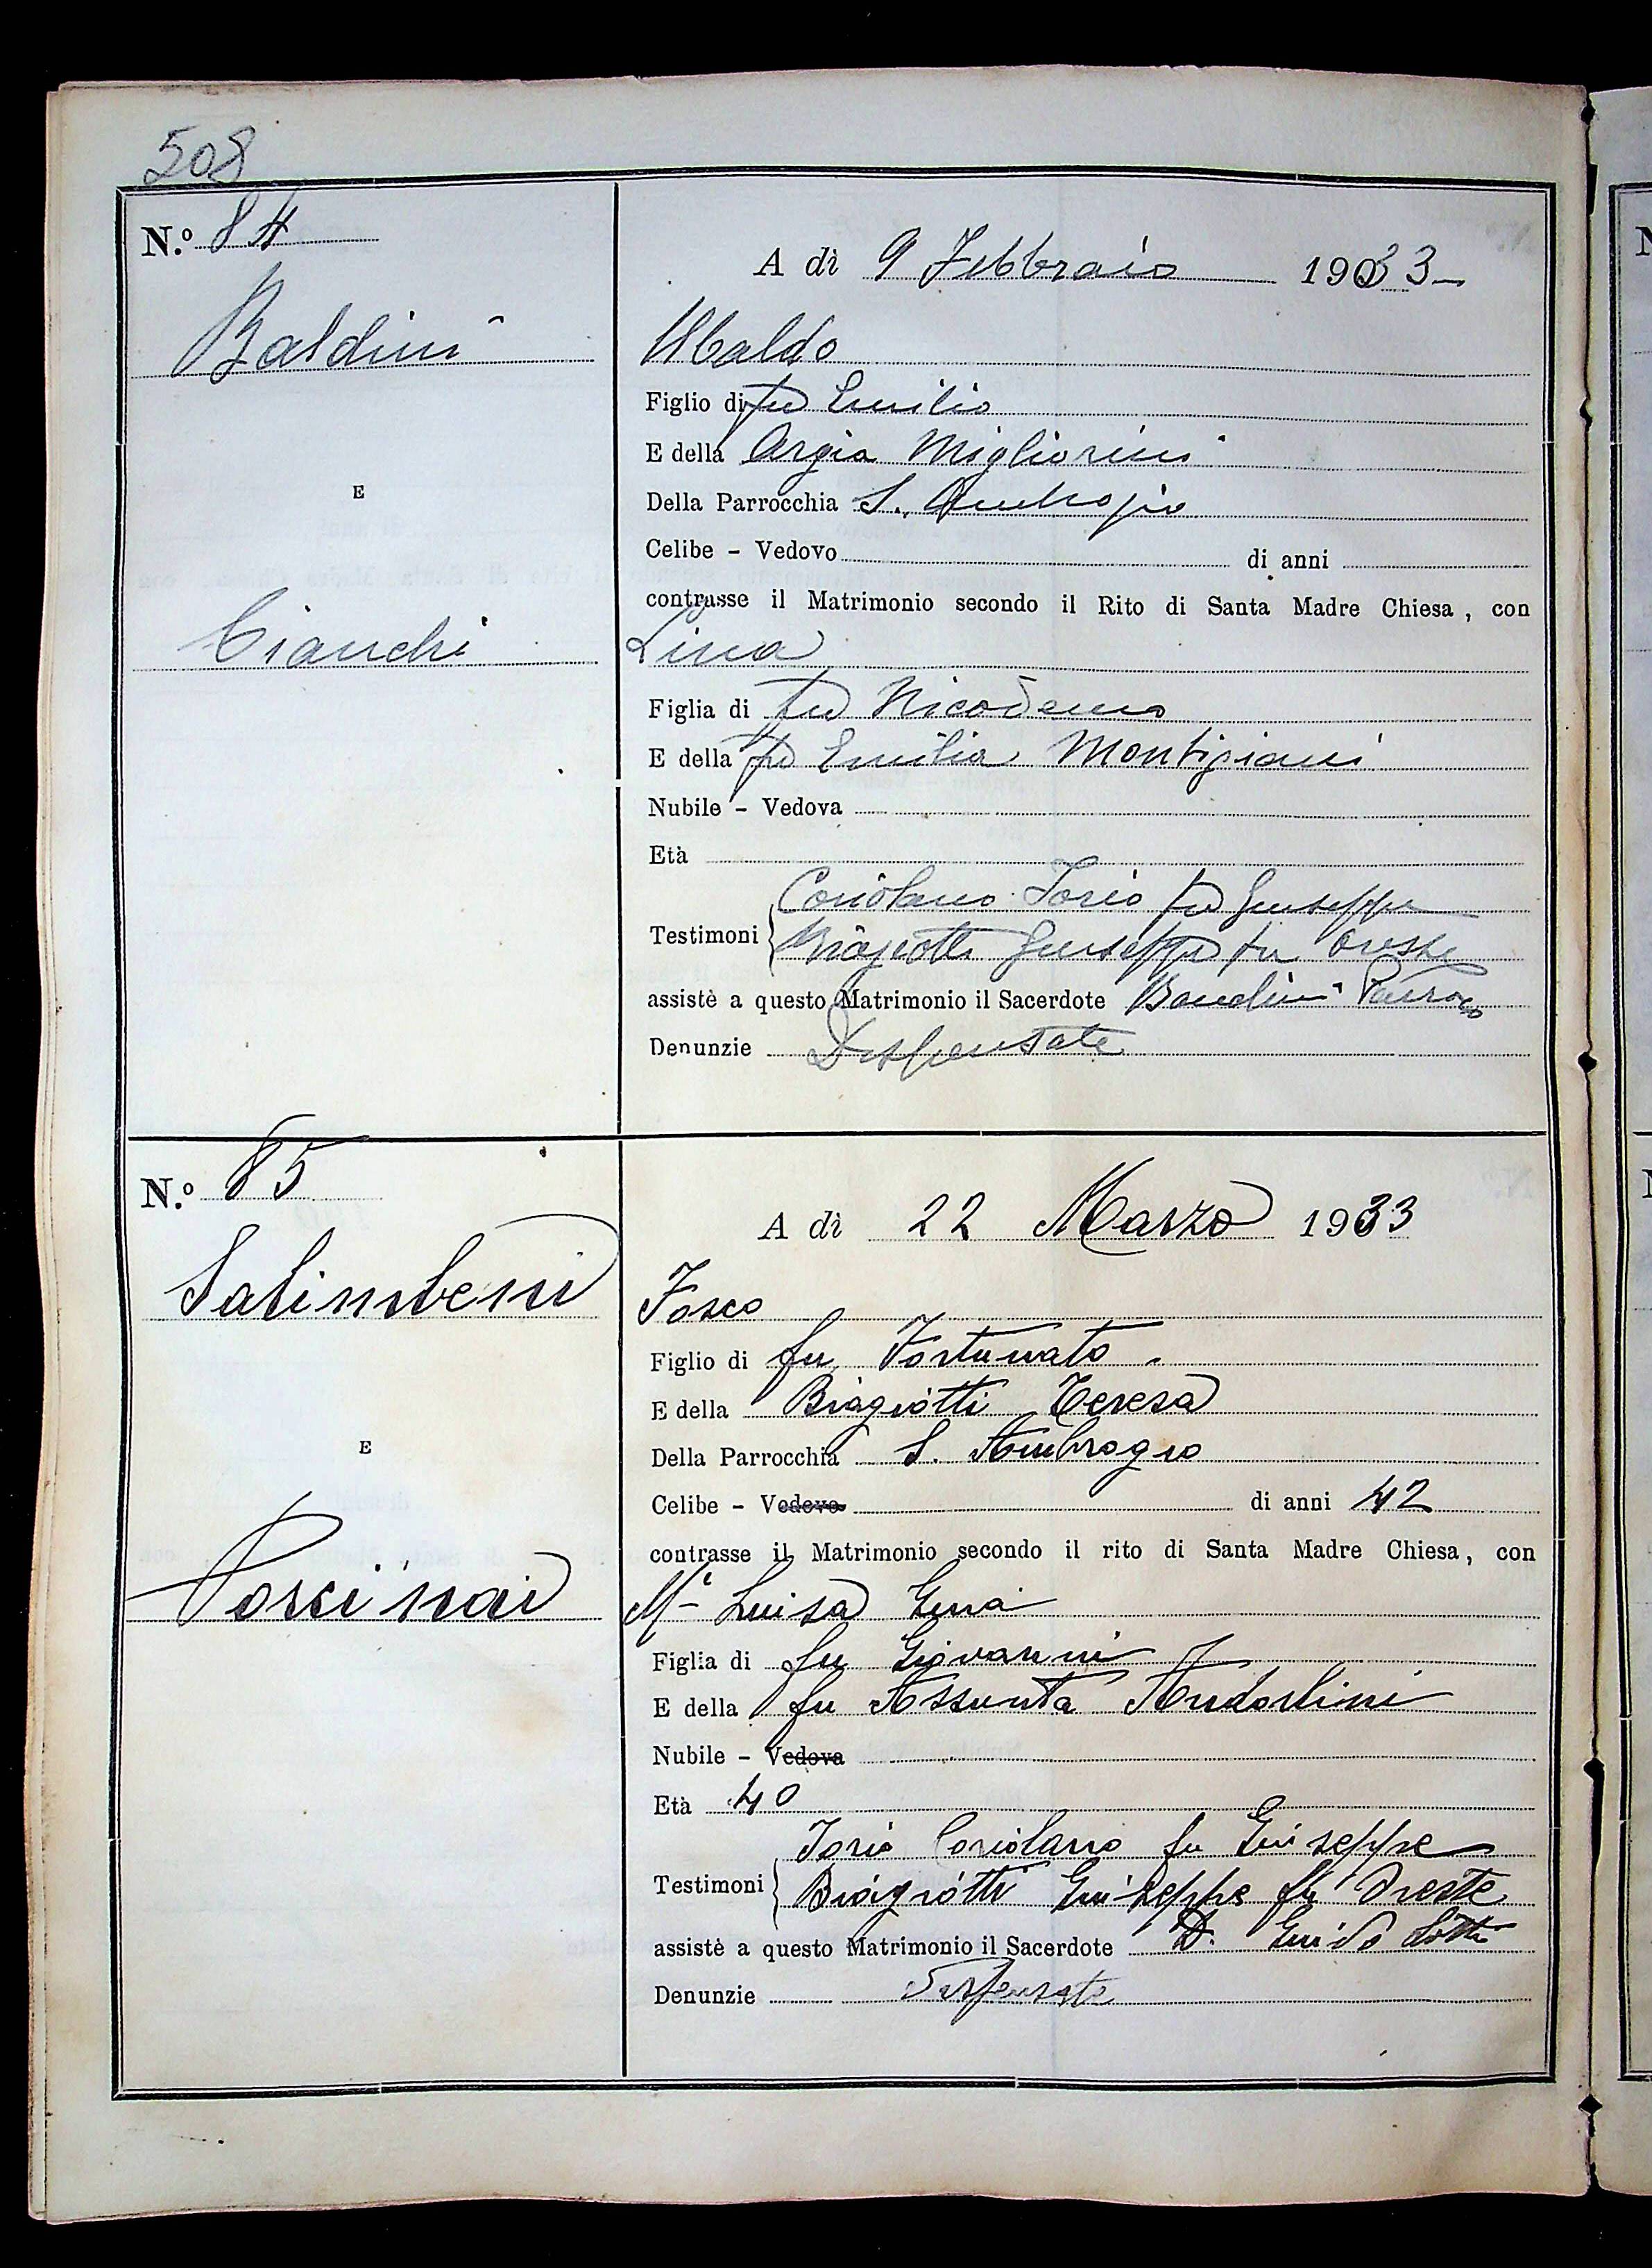 508
N.º 84
A dì 9 Febbraio 1933
Baldini
Ubaldo
Figlio di fu Emilio
E della Argia Migliorini
Della Parrocchia S. Ambrogio
E
Celibe - Vedovo di anni
contrasse il Matrimonio secondo il Rito di Santa Madre Chiesa, con
Cianchi
Lina
Figlia di fu Nicodemo
E della fu Emilia Montigiani
Nubile - Vedova
Età
Coriolano Iorio fu Giuseppe
Testimoni Biagiotti Giuseppe fu Oreste
assistè a questo Matrimonio il Sacerdote Bandini Parroco
Denunzie Dispensate
N.º 85
A dì 22 Marzo 1933
Salimbeni
Fosco
Figlio di fu Fortunato
E della Biagiotti Teresa
Della Parrocchia S. Ambrogio
E
Celibe - Vedovo di anni 42
contrasse il Matrimonio secondo il rito di Santa Madre Chiesa, con
Porcinai
Mª Luisa Gina
Figlia di fu Giovanni
E della fu Assunta Andorlini
Nubile - Vedova
Età 40
Iorio Coriolano fu Giuseppe
Testimoni Biagiotti Giuseppe fu Oreste
assistè a questo Matrimonio il Sacerdote D. Guido Lotti
Denunzie Dispensate